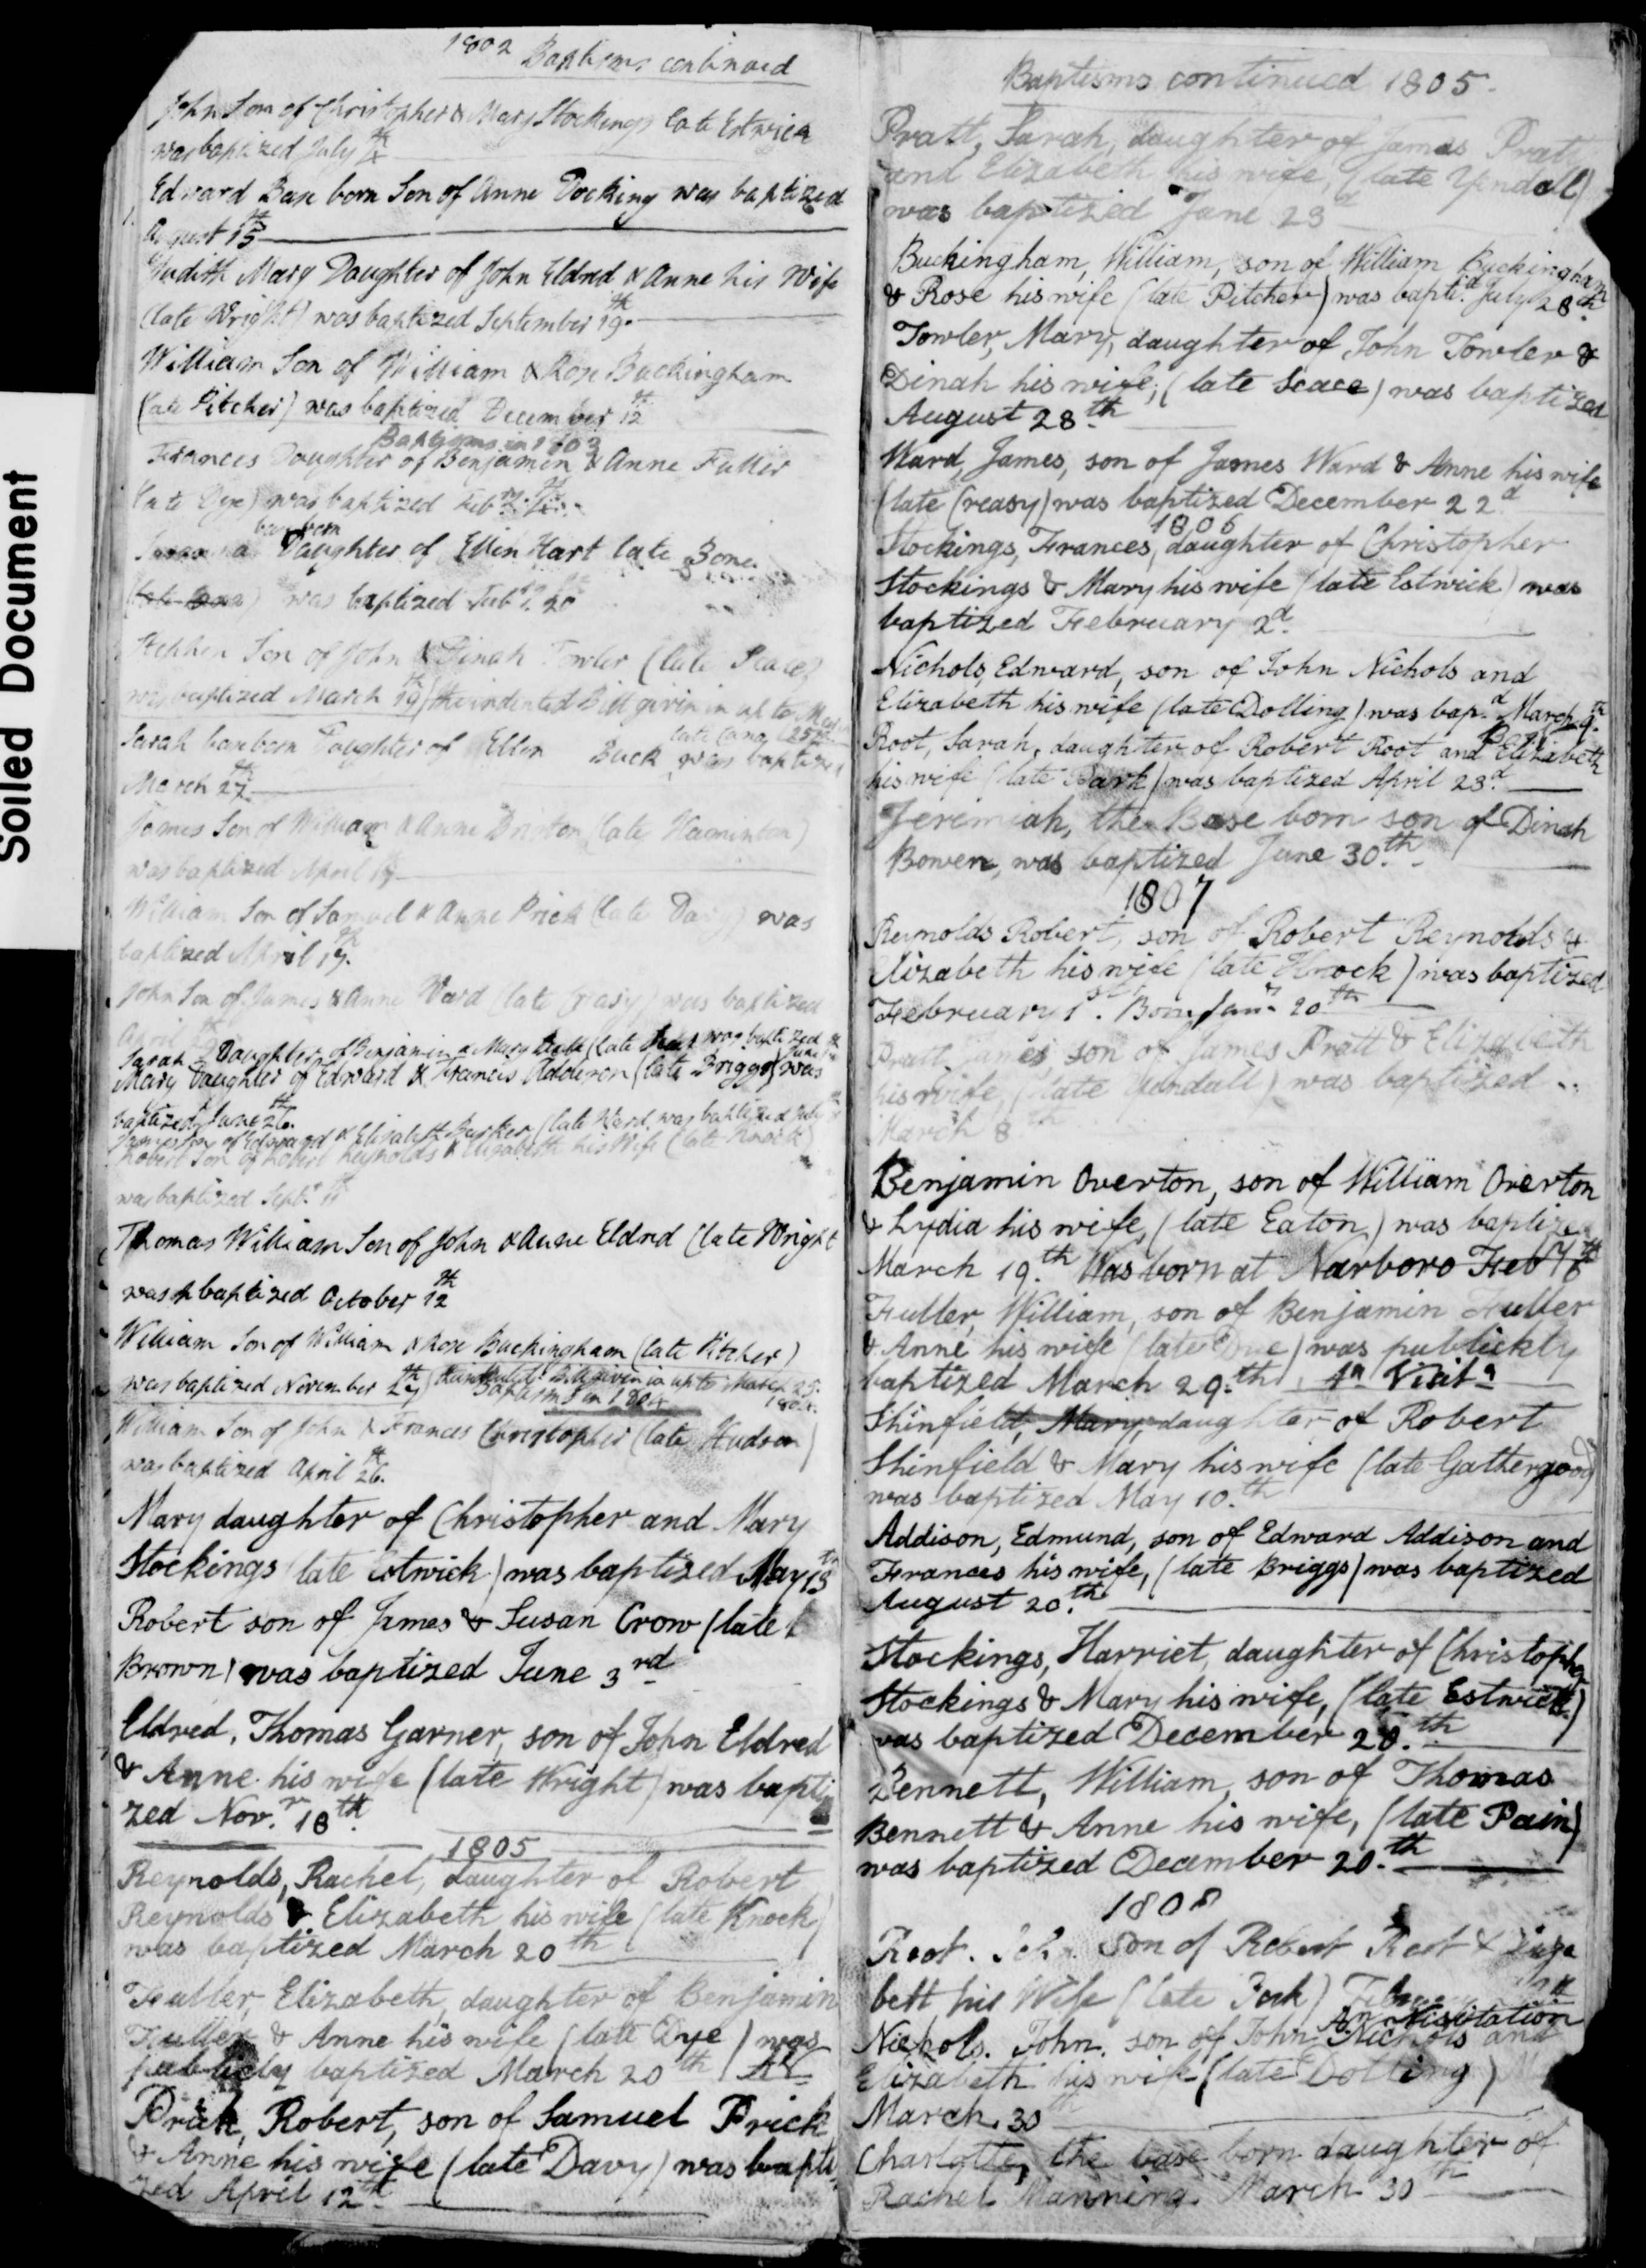 Soiled Document
1802 Baptisms continued
John Son of Christopher & Mary Stockings late Estwick
was baptized July 4th
Edward Base born Son of Anne Docking was baptized
August 15th
Judith Mary Daughter of John Eldred & Anne his Wife
(late Wright) was baptized September 19th
William Son of William & Rose Buckingham
(late Pitcher) was baptized December 12th
Baptisms in 1803
Frances Daughter of Benjamin & Anne Fuller
(late Dye) was baptized Feb
base born
a Daughter of Ellen Hart late Bone
was baptized Feb 20
Stephen Son of John & Dinah Towler (late Scace)
was baptized March 19th (the indented Bill given in up to
25th
Sarah base born Daughter of Ellen Buck was baptized
March 27th
James Son of William & Anne (late
was baptized April
William Son of Samuel & Anne Prick (late Davy) was
baptized April 17th
John Son of James & Anne Ward (late Creasy) was baptized
April
Sarah Daughter of Benjamin & Mary (late was baptized
Mary Daughter of Edward & Frances Addison (late Briggs) was
baptized June 26th
James Son of Edward & Elizabeth Barker (late Ward was baptized July
Robert Son of Robert Reynolds & Elizabeth his Wife (late Knock)
was baptized Sept. 11th
Thomas William Son of John & Anne Eldred (late Wright
was baptized October 12th
William Son of William & Rose Buckingham (late Pitcher)
was baptized November 27th (the indented Bill given in up to March 25.
Baptisms in 1804 1804.
William Son of John & Frances Christopher (late Hudson)
was baptized April 26th
Mary daughter of Christopher and Mary
Stockings (late Estwick) was baptized May 13th
Robert son of James & Susan Crow (late
Brown) was baptized June 3rd
Eldred, Thomas Garner, son of John Eldred
& Anne his wife (late Wright) was bapti
zed Novr. 18th
1805
Reynolds, Rachel, daughter of Robert
Reynolds & Elizabeth his wife (late Knock)
was baptized March 20th
Fuller, Elizabeth, daughter of Benjamin
Fuller & Anne his wife (late Dye) was
publicly baptized March 20th
Prick, Robert, son of Samuel Prick
& Anne his wife (late Davy) was bapti
zed April 12th
Baptisms continued 1805.
Pratt, Sarah, daughter of James Pratt
and Elizabeth his wife (late Yendall)
was baptized June 23d
Buckingham, William, son of William Buckingham
& Rose his wife (late Pitcher) was bapti.d July 28th
Towler, Mary, daughter of John Towler &
Dinah his wife, (late Scace) was baptized
August 28th
Ward, James, son of James Ward & Anne his wife
(late Creasy) was baptized December 22d
1806
Stockings, Frances, daughter of Christopher
Stockings & Mary his wife (late Estwick) was
baptized February 2d.
Nichols, Edward, son of John Nichols and
Elizabeth his wife (late Dolling) was bap.d March 9th
Root, Sarah, daughter of Robert Root and Elizabeth
his wife (late Park) was baptized April 23d.
Jeremiah, the Base born son of Dinah
Bowen, was baptized June 30th.
1807
Reynolds Robert, son of Robert Reynolds &
Elizabeth his wife (late Knock) was baptized
February 1st. Born Jany 20th
Pratt, James, son of James Pratt & Elizabeth
his wife, (late Yendall) was baptized
March 8th
Benjamin Overton, son of William Overton
& Lydia his wife, (late Eaton) was baptized
March 19.th Was born at Narboro Feb
Fuller, William, son of Benjamin Fuller
& Anne his wife (late Dye) was publickly
baptized March 29.th An Visitn
Shinfield, Mary, daughter of Robert
Shinfield & Mary his wife (late Gathergood)
was baptized May 10.th
Addison, Edmund, son of Edward Addison and
Frances his wife, (late Briggs) was baptized
August 20.th
Stockings, Harriet, daughter of Christopher
Stockings & Mary his wife, (late Estwick)
was baptized December 20.th
Bennett, William, son of Thomas
Bennett & Anne his wife, (late Pain)
was baptized December 20.th
1808
Root. John Son of Robert Root & Eliza
beth his Wife (late Park)
An Visitation
Nichols. John. son of John Nichols and
Elizabeth his wife (late Dolling)
March 30th
Charlotte, the base born daughter of
Rachel Manning. March 30th